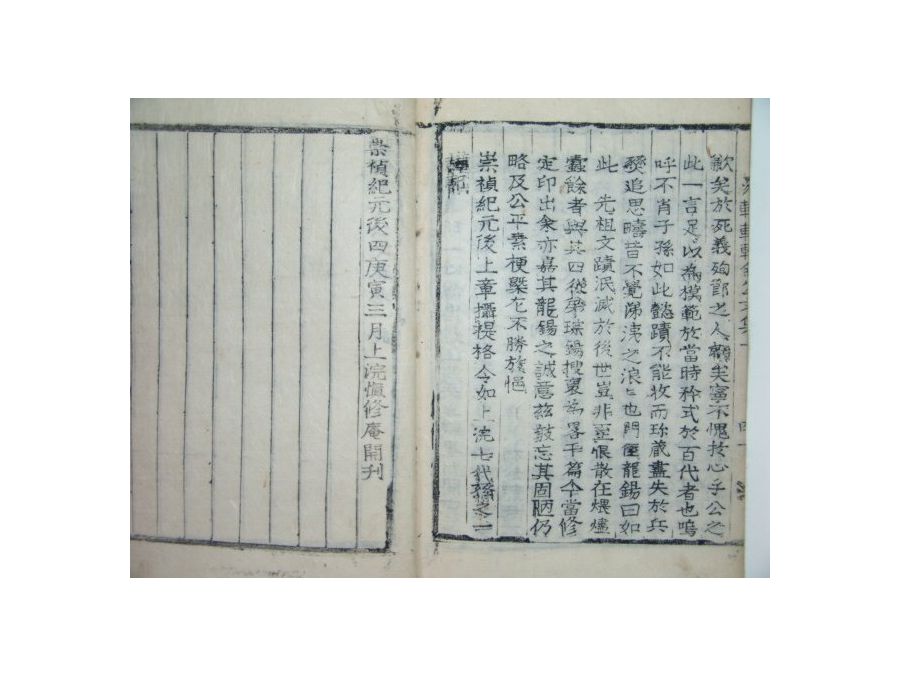 歉矣於死義殉節之人顧矣寧不愧於心乎公之
此一言足以為模範於當時矜式於百代者也嗚
呼不肖子孫如此懿蹟不能收而珎藏盡失於兵
燹追思疇昔不覺涕洟之浪〻也門侄龍錫曰如
此 先祖文蹟泯滅於後世豈非至恨散在煨燼
蠹餘者與其四從弟琮錫搜裒為畧干篇今當修
定印出余亦嘉其龍錫之誠意玆敢忘其固陋仍
略及公平素梗槩尤不勝旒悒
崇禎紀元後上章攝提格令如上浣七代孫之一
謹誌
崇禎紀元後四庚寅三月上浣愼修庵開刋